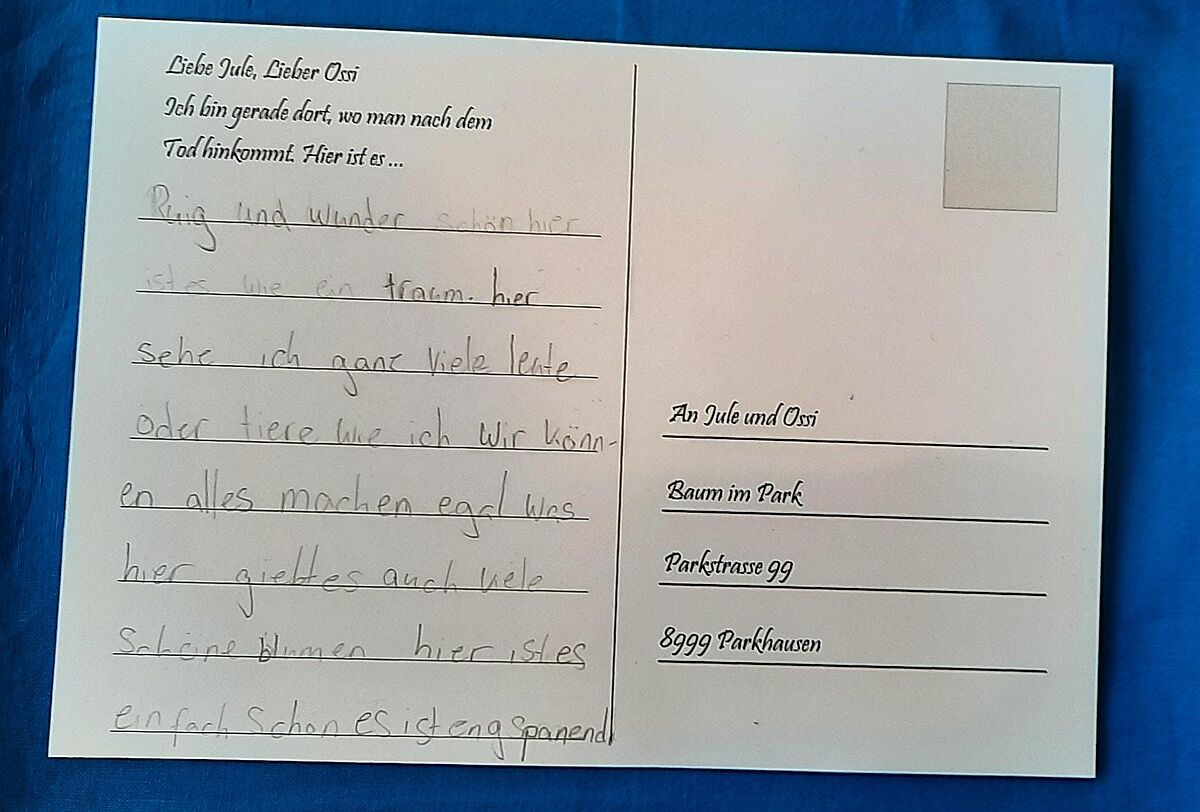 Liebe Jule, Lieber Ossi
Ich bin gerade dort, wo man nach dem
Tod hinkommt. Hier ist es ...
Ruig und wunder schön hier
ist es wie ein traum. hier
sehe ich ganz viele leute
oder tiere wie ich wir könn-
en alles machen egal was
hier giebt es auch viele
schöne blumen hier ist es
einfach schön es ist engspanend
An Jule und Ossi
Baum im Park
Parkstrasse 99
8999 Parkhausen